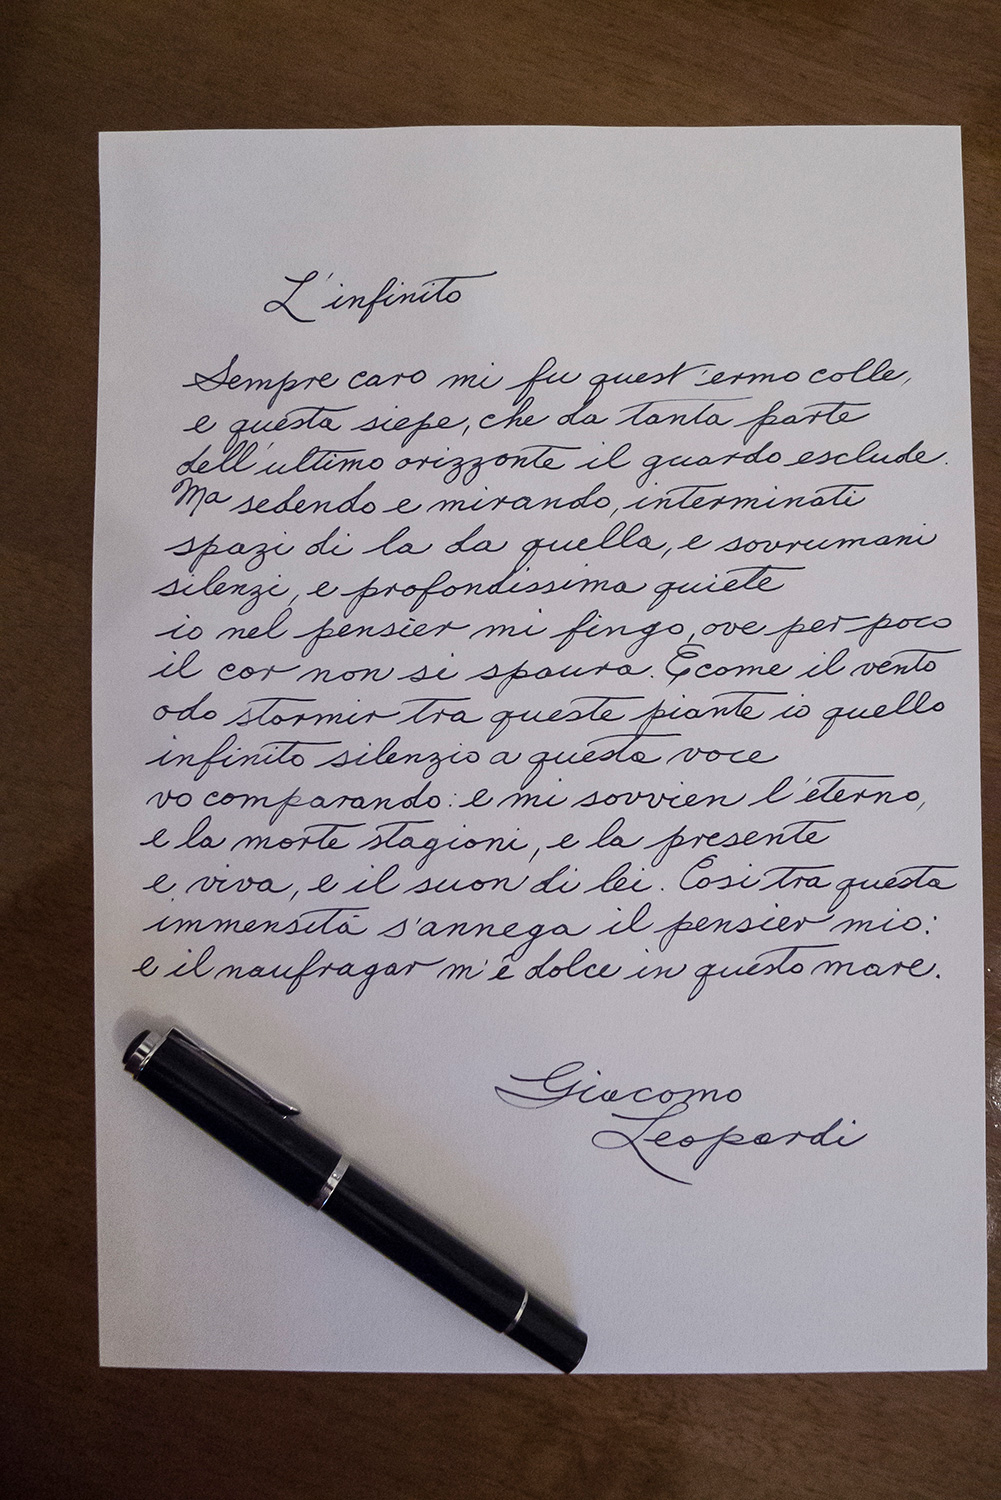 L'infinito
Sempre caro mi fu quest'ermo colle,
e questa siepe, che da tanta parte
dell'ultimo orizzonte il guardo esclude.
Ma sedendo e mirando, interminati
spazi di la da quella, e sovrumani
silenzi, e profondissima quiete
io nel pensier mi fingo, ove per poco
il cor non si spaura. E come il vento
odo stormir tra queste piante io quello
infinito silenzio a questa voce
vo comparando: e mi sovvien l'eterno,
e la morte stagioni, e la presente
e viva, e il suon di lei. Cosi tra questa
immensità s'annega il pensier mio:
e il naufragar m'è dolce in questo mare.
Giacomo
Leopardi